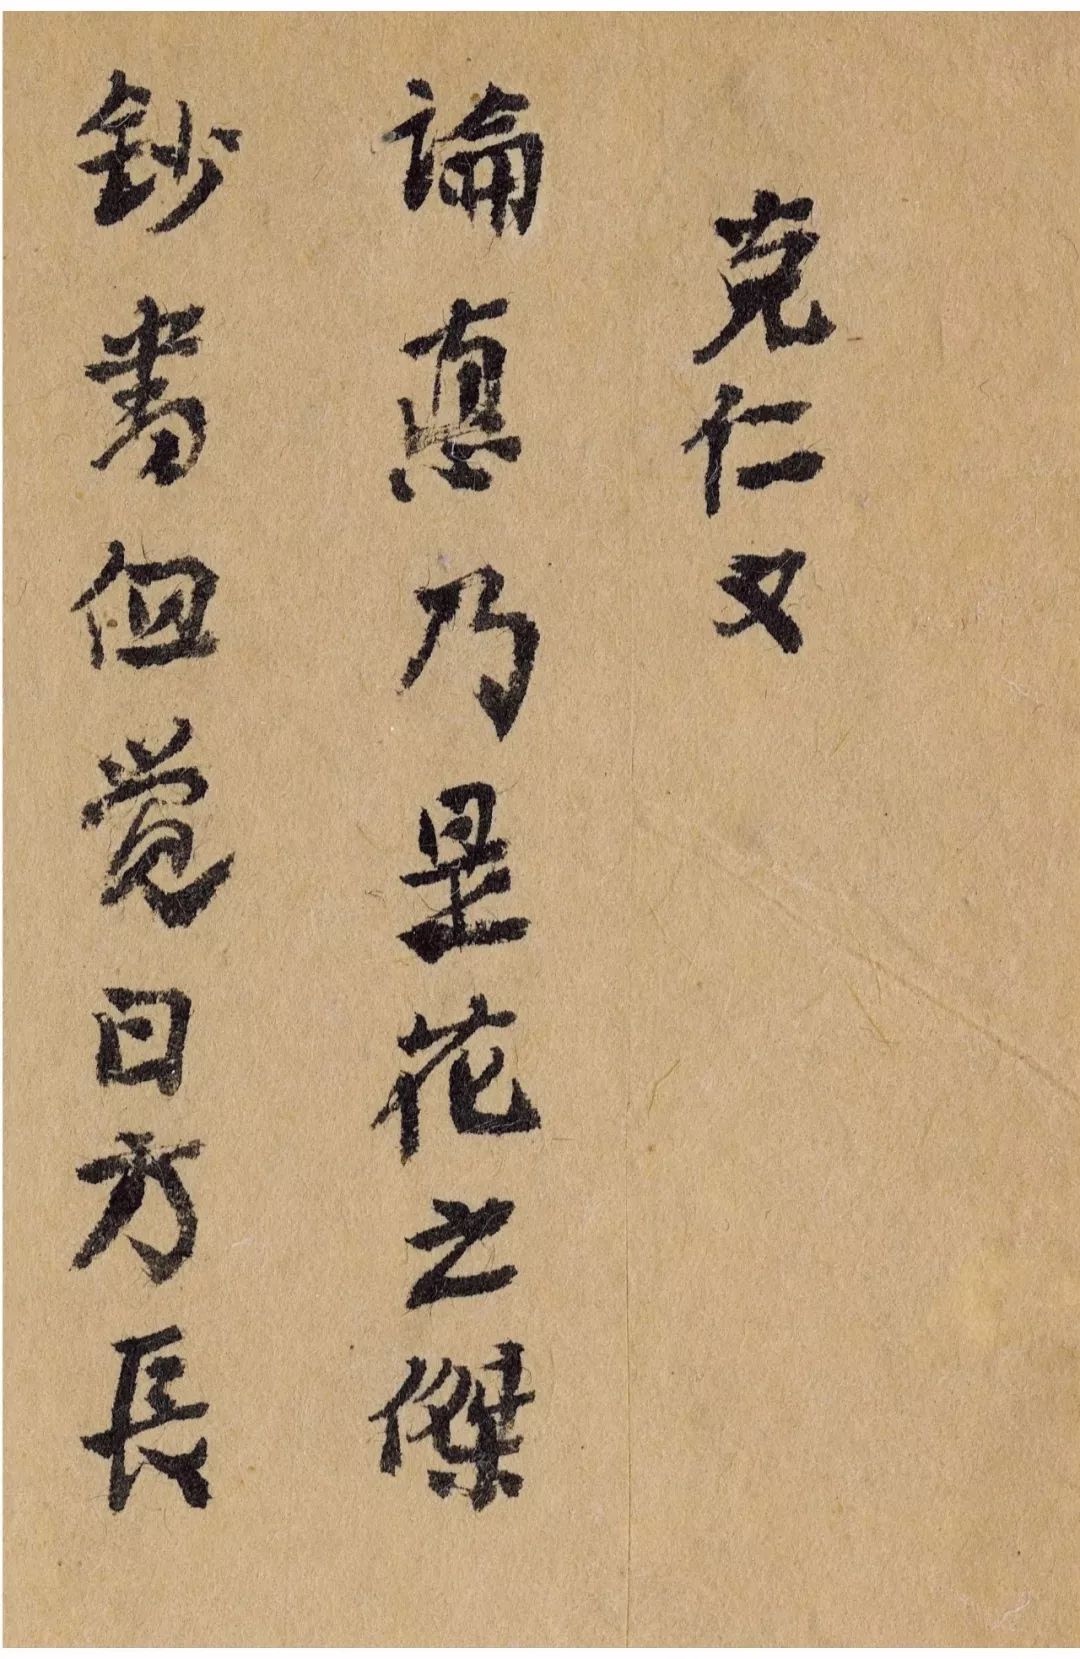 克仁又
論悳乃是花之傑
鈔書但覺日方長